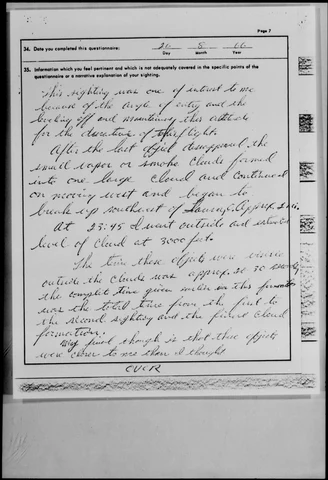 Page 7
34. Date you completed this questionnaire: 26 8 66
Day Month Year
35. Information which you feel pertinent and which is not adequately covered in the specific points of the
questionnaire or a narrative explanation of your sighting.
This sighting was one of interest to me
because of the angle of entry and the
leveling off and maintaining this altitude
for the duration of flight.
After the last object disappeared, the
small vapor or smoke clouds formed
into one large cloud and continued
on moving west and began to
break up southeast of approx 2 mi.
At 23:45 I went outside and
level of cloud at 3000 feet.
The time these objects were visible
outside the clouds was approx. 20 30 seconds
the complete time given on this
was the total time from the first to
the second sighting and the final cloud
formation.
My final though is that these objects
were closer to me than I thought
OVER